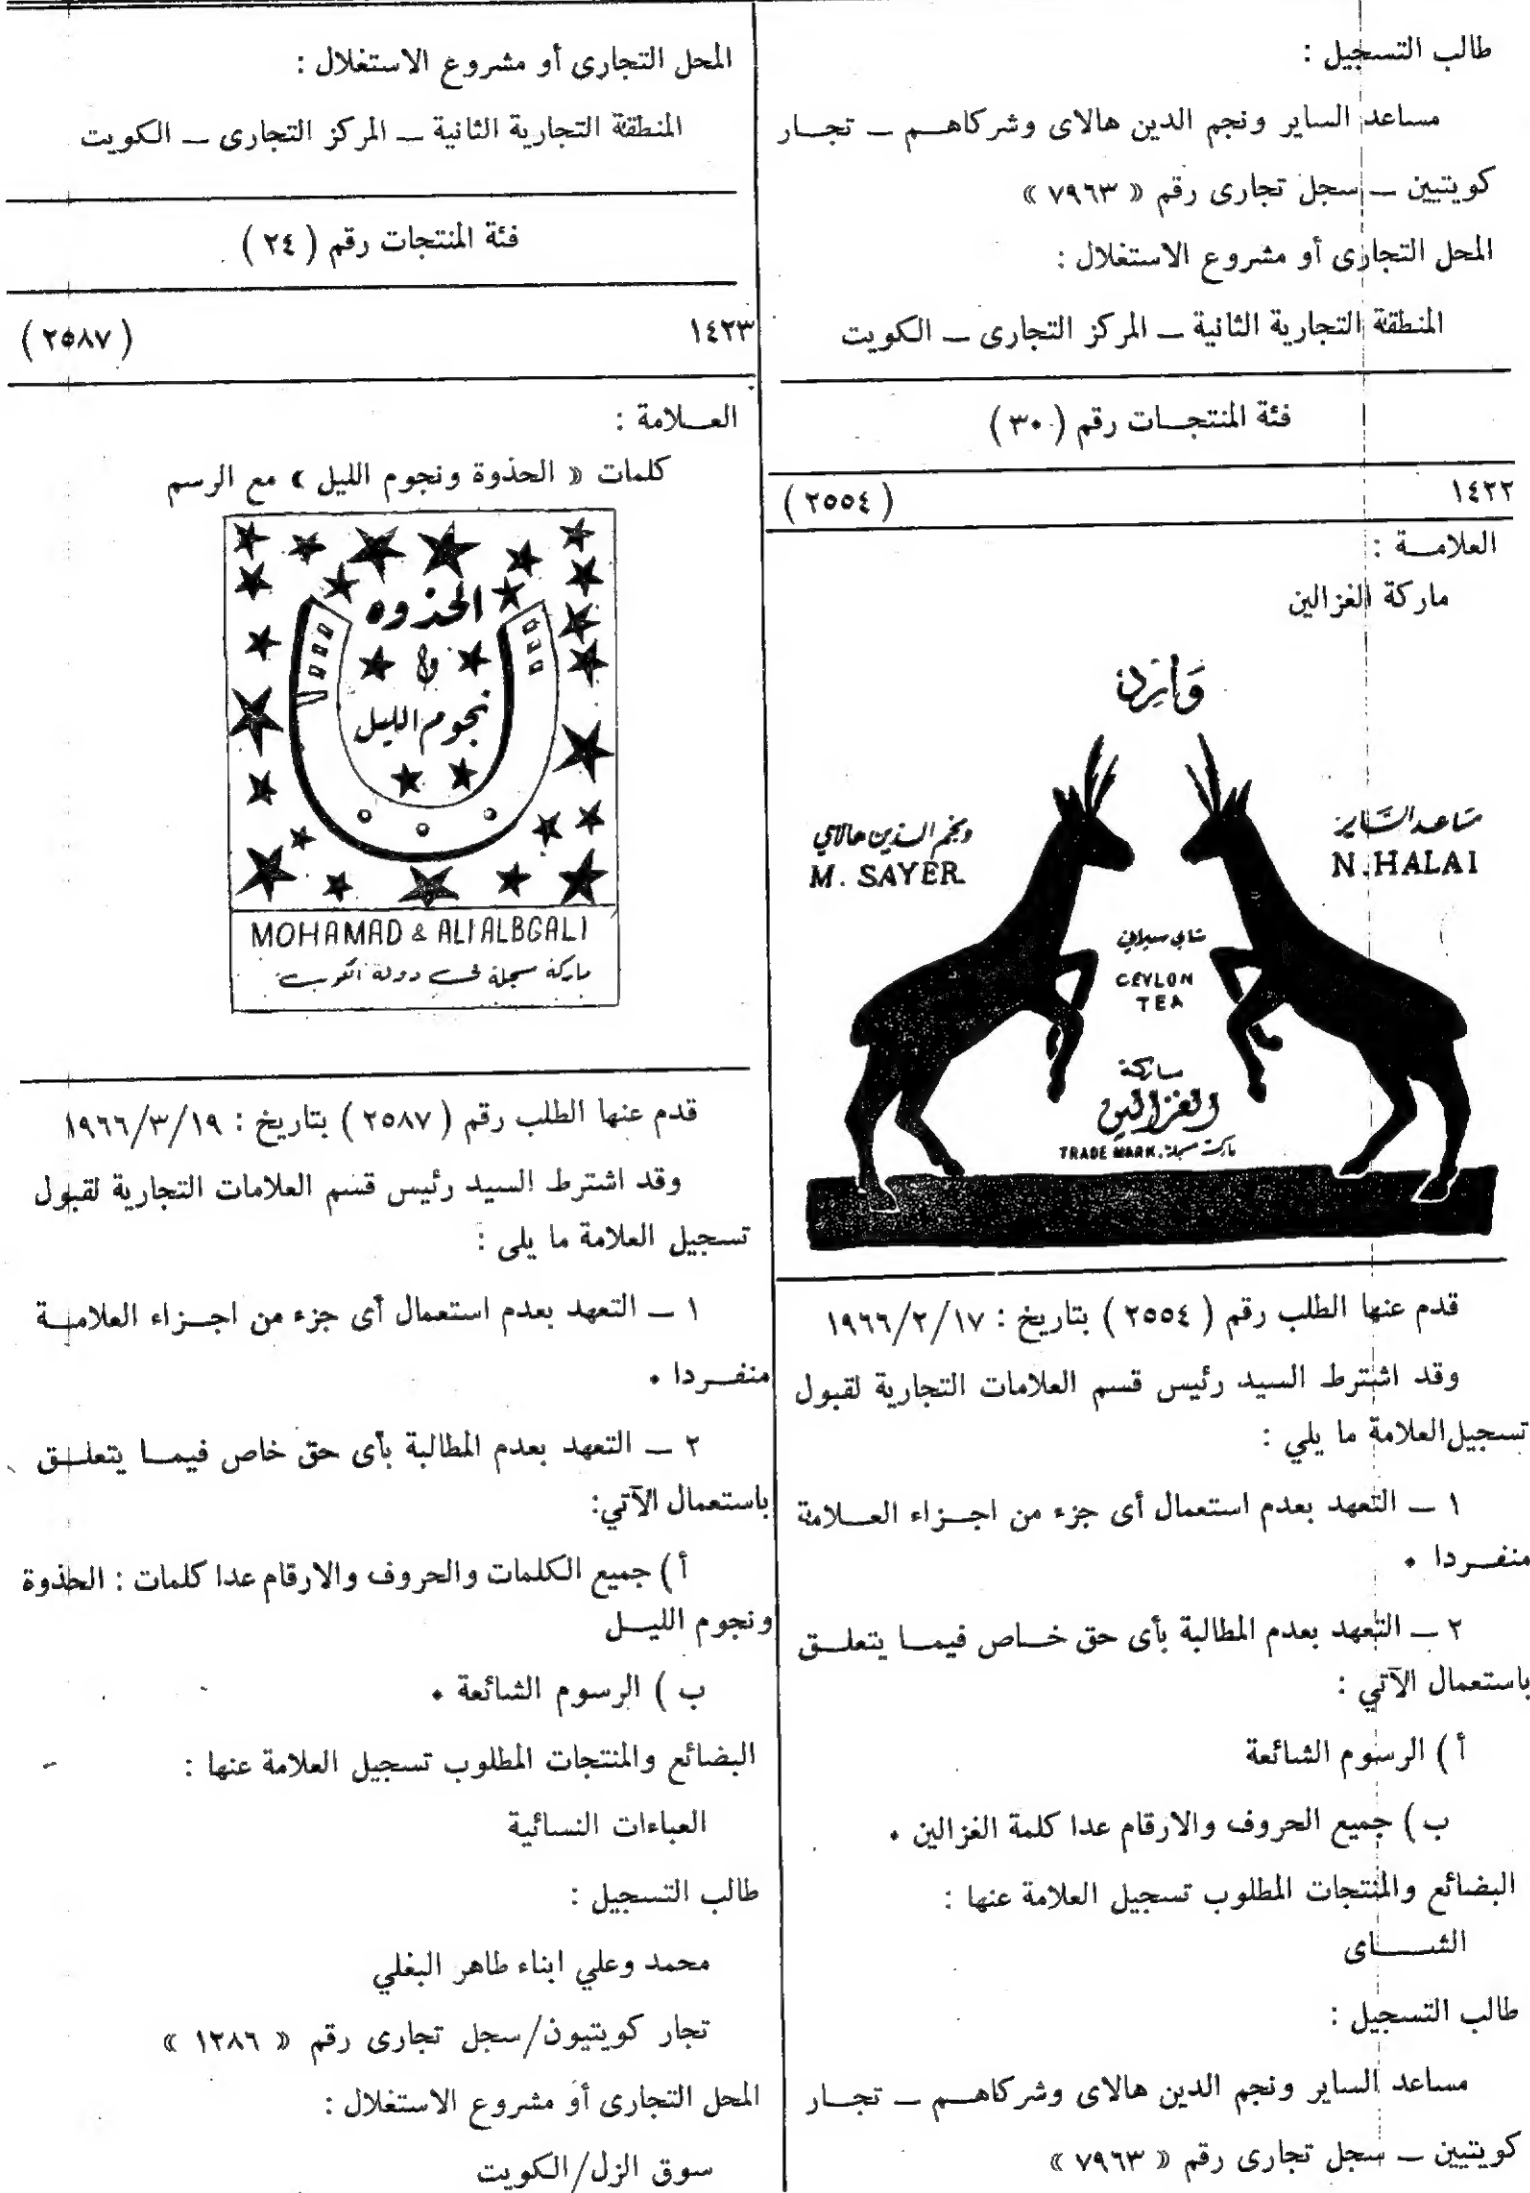 طالب التسجيل :
مساعد الساير ونجم الدين هالاى وشركاهــم ــ تجــار
كويتيين ــ سجل تجارى رقم « ٧٩٦٣ »
المحل التجارى أو مشروع الاستغلال :
المنطقة التجارية الثانية ــ المركز التجارى ــ الكويت
فئة المنتجــات رقم ( ٣٠ )
١٤٢٢ ( ٢٥٥٤ )
العلامــة :
ماركة الغزالين
وَارِد
مساعد الساير
N. HALAI
ونجم الدين هالاي
M. SAYER
شاي سيلاني
CEYLON
TEA
ماركة
الغزالين
TRADE MARK. ماركة مسجلة
قدم عنها الطلب رقم ( ٢٥٥٤ ) بتاريخ : ١٩٦٦/٢/١٧
وقد اشترط السيد رئيس قسم العلامات التجارية لقبول
تسجيل العلامة ما يلي :
١ ــ التعهد بعدم استعمال أى جزء من اجــزاء العــلامة
منفــردا .
٢ ــ التعهد بعدم المطالبة بأى حق خــاص فيمــا يتعلــق
باستعمال الآتي :
أ ) الرسوم الشائعة
ب ) جميع الحروف والارقام عدا كلمة الغزالين .
البضائع والمنتجات المطلوب تسجيل العلامة عنها :
الشــــاى
طالب التسجيل :
مساعد الساير ونجم الدين هالاى وشركاهــم ــ تجــار
كويتيين ــ سجل تجارى رقم « ٧٩٦٣ »
المحل التجارى أو مشروع الاستغلال :
المنطقة التجارية الثانية ــ المركز التجارى ــ الكويت
فئة المنتجات رقم ( ٢٤ )
١٤٢٣ ( ٢٥٨٧ )
العــلامة :
كلمات « الحذوة ونجوم الليل » مع الرسم
الحذوه
و
نجوم الليل
MOHAMAD & ALI ALBGALI
ماركة مسجلة في دولة الكويت
قدم عنها الطلب رقم ( ٢٥٨٧ ) بتاريخ : ١٩٦٦/٣/١٩
وقد اشترط السيد رئيس قسم العلامات التجارية لقبول
تسجيل العلامة ما يلى :
١ ــ التعهد بعدم استعمال أى جزء من اجــزاء العلامــة
منفــردا .
٢ ــ التعهد بعدم المطالبة بأى حق خاص فيمــا يتعلــق
باستعمال الآتي:
أ ) جميع الكلمات والحروف والارقام عدا كلمات : الحذوة
ونجوم الليــل
ب ) الرسوم الشائعة .
البضائع والمنتجات المطلوب تسجيل العلامة عنها :
العباءات النسائية
طالب التسجيل :
محمد وعلي ابناء طاهر البغلي
تجار كويتيون/سجل تجارى رقم « ١٢٨٦ »
المحل التجارى أو مشروع الاستغلال :
سوق الزل/الكويت